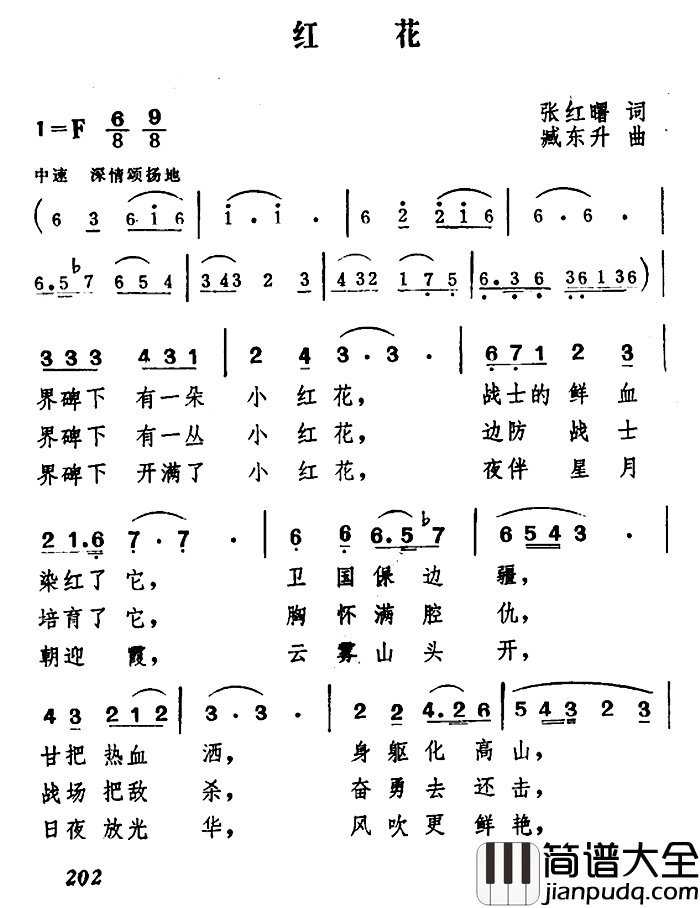 红 花
1=F 6/8 9/8
张红曙 词
臧东升 曲
中速 深情颂扬地
(6 3 6·i 6 | i· i· | 6 2 2 i 6 | 6· 6· |
6.5 b7 6 5 4 | 3 4 3 2 3 | 4 3 2 1 7 5 | 6.3 6 3 6 1 3 6) |
3 3 3 4 3 1 | 2 4 3· 3· | 6 7 1 2 3 |
界碑下 有一朵 小 红 花, 战士的 鲜 血
界碑下 有一丛 小 红 花, 边防 战 士
界碑下 开满了 小 红 花, 夜伴 星 月
2 1.6 7· 7· | 6 6 6.5 b7 | 6 5 4 3· |
染红了 它, 卫 国 保 边 疆,
培育了 它, 胸 怀 满 腔 仇,
朝迎 霞, 云 雾 山 头 开,
4 3 2 1 2 | 3· 3· | 2 2 4.2 6 | 5 4 3 2 3 |
甘把 热血 洒, 身 躯 化 高 山,
战场 把敌 杀, 奋 勇 去 还 击,
日夜 放光 华, 风 吹 更 鲜 艳,
202
简谱大全
jianpudq.com